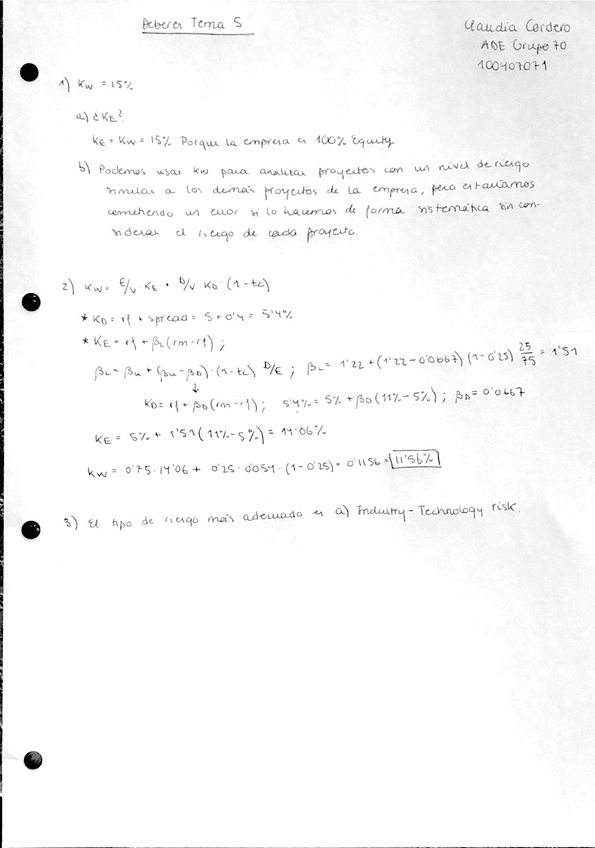 Deberes Tema 5
Claudia Cordero
ADE Grupo 70
100407071
1) Kw = 15%
a) ¿KE?
KE = Kw = 15% Porque la empresa es 100% Equity.
b) Podemos usar Kw para analizar proyectos con un nivel de riesgo
similar a los demás proyectos de la empresa, pero estaríamos
cometiendo un error si lo hacemos de forma sistemática sin con-
siderar el riesgo de cada proyecto.
2) Kw = E/V KE + D/V KD · (1-tc)
* KD = rf + spread = 5 + 0'4 = 5'4%
* KE = rf + βL (rm-rf) ;
βL = βu + (βu - βD) · (1-tc) D/E ; βL = 1'22 + (1'22 - 0'0667) (1-0'25) · 25/75 = 1'51
↓
KD = rf + βD (rm-rf) ; 5'4% = 5% + βD (11% - 5%) ; βD = 0'0667
KE = 5% + 1'51 (11% - 5%) = 14'06%
Kw = 0'75 · 14'06 + 0'25 · 0'054 · (1-0'25) = 0'1156 = 11'56%
3) El tipo de riesgo más adecuado es a) Industry - Technology risk.